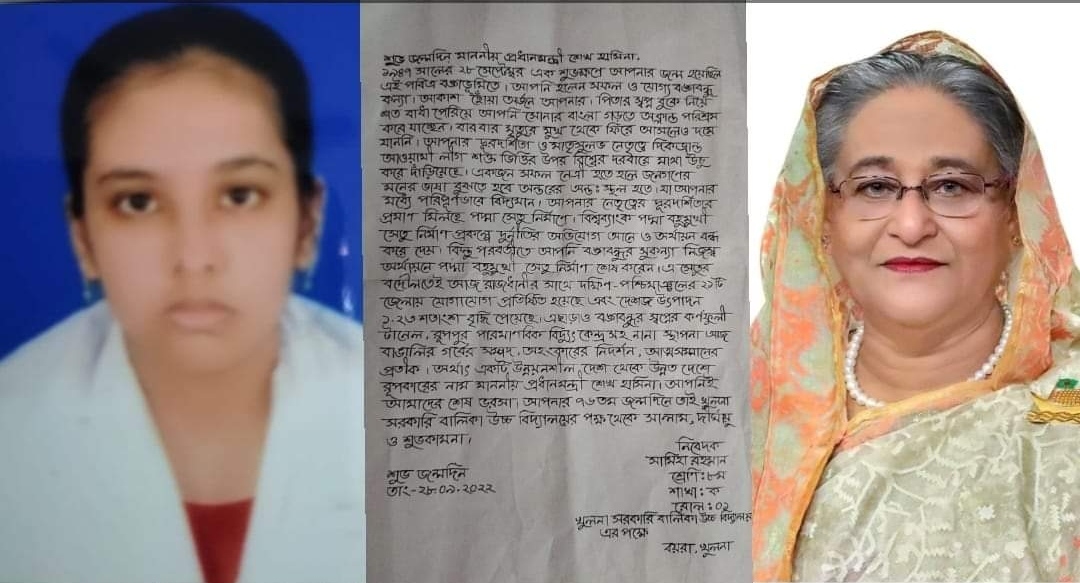 শুভ জন্মদিন মাননীয় প্রধানমন্ত্রী শেখ হাসিনা,
১৯৪৭ সালের ২৮ সেপ্টেম্বর এক শুভক্ষণে আপনার জন্ম হয়েছিল
এই পবিত্র বঙ্গভূমিতে। আপনি হলেন সফল ও যোগ্য বঙ্গবন্ধু
কন্যা। আকাশ ছোঁয়া অর্জন আপনার। পিতার স্বপ্ন বুকে নিয়ে
শত বাধা পেরিয়ে আপনি সোনার বাংলা গড়তে অক্লান্ত পরিশ্রম
করে যাচ্ছেন। বারবার মৃত্যুর মুখ থেকে ফিরে আসলেও দমে
যাননি। আপনার দূরদর্শিতা ও মাতৃসুলভ নেতৃত্বে দিকভ্রান্ত
আওয়ামী লীগ শক্ত ভিত্তির উপর বিশ্বের দরবারে মাথা উঁচু
করে দাঁড়িয়েছে। একজন সফল নেত্রী হতে হলে জনগণের
মনের ভাষা বুঝতে হবে অন্তরের অন্তঃস্থল হতে। যা আপনার
মধ্যে পরিপূর্ণভাবে বিদ্যমান। আপনার নেতৃত্বের দূরদর্শিতার
প্রমাণ মিলছে পদ্মা সেতু নির্মাণে। বিশ্বব্যাংক পদ্মা বহুমুখী
সেতু নির্মাণ প্রকল্পে দুর্নীতির অভিযোগ আনে ও অর্থায়ন বন্ধ
করে দেয়। কিন্তু পরবর্তীতে আপনি বঙ্গবন্ধুর সুকন্যা নিজস্ব
অর্থায়নে পদ্মা বহুমুখী সেতু নির্মাণ শেষ করেন। এ সেতুর
বদৌলতেই আজ রাজধানীর সাথে দক্ষিণ-পশ্চিমাঞ্চলের ২১টি
জেলায় যোগাযোগ প্রতিষ্ঠিত হয়েছে এবং দেশজ উৎপাদন
১.২৩ শতাংশ বৃদ্ধি পেয়েছে। এছাড়াও বঙ্গবন্ধুর স্বপ্নের কর্ণফুলী
টানেল, রূপপুর পারমাণবিক বিদ্যুৎ কেন্দ্র সহ নানা স্থাপনা আজ
বাঙালির গর্বের সম্পদ, অহংকারের নিদর্শন, আত্মসম্মানের
প্রতীক। অর্থাৎ একটি উন্নয়নশীল দেশ থেকে উন্নত দেশে
রূপকারের নাম মাননীয় প্রধানমন্ত্রী শেখ হাসিনা। আপনিই
আমাদের শেষ ভরসা। আপনার ৭৬তম জন্মদিনে তাই খুলনা
সরকারি বালিকা উচ্চ বিদ্যালয়ের পক্ষ থেকে সালাম, দীর্ঘায়ু
ও শুভকামনা।
নিবেদক
সামিহা রহমান
শ্রেণি: ৮ম
শাখা: ক
রোল: ০২
খুলনা সরকারি বালিকা উচ্চ বিদ্যালয়
এর পক্ষে
বয়রা, খুলনা
শুভ জন্মদিন
তাং-২৮.০৯.২০২২